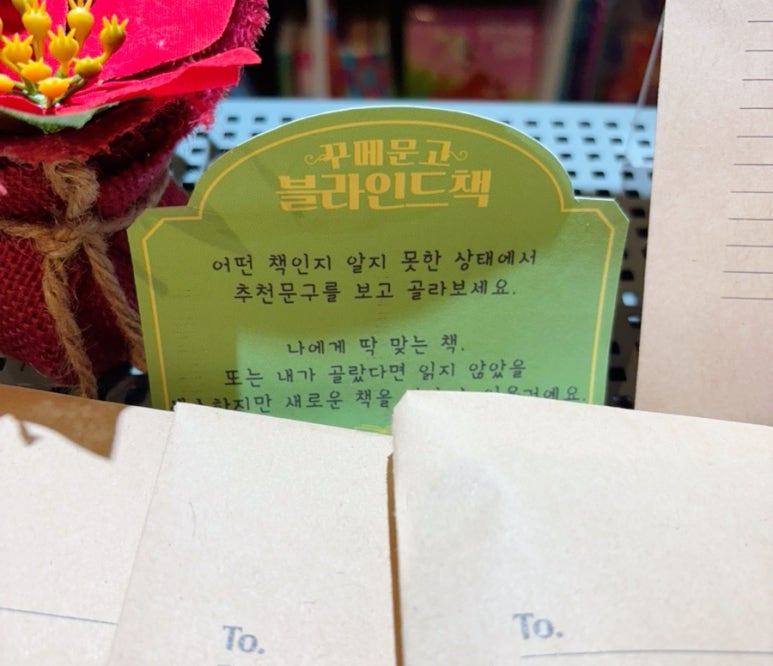 꾸메문고
블라인드책
어떤 책인지 알지 못한 상태에서
추천문구를 보고 골라보세요.
나에게 딱 맞는 책.
또는 내가 골랐다면 읽지 않았을
새로운 책을
To.
To.